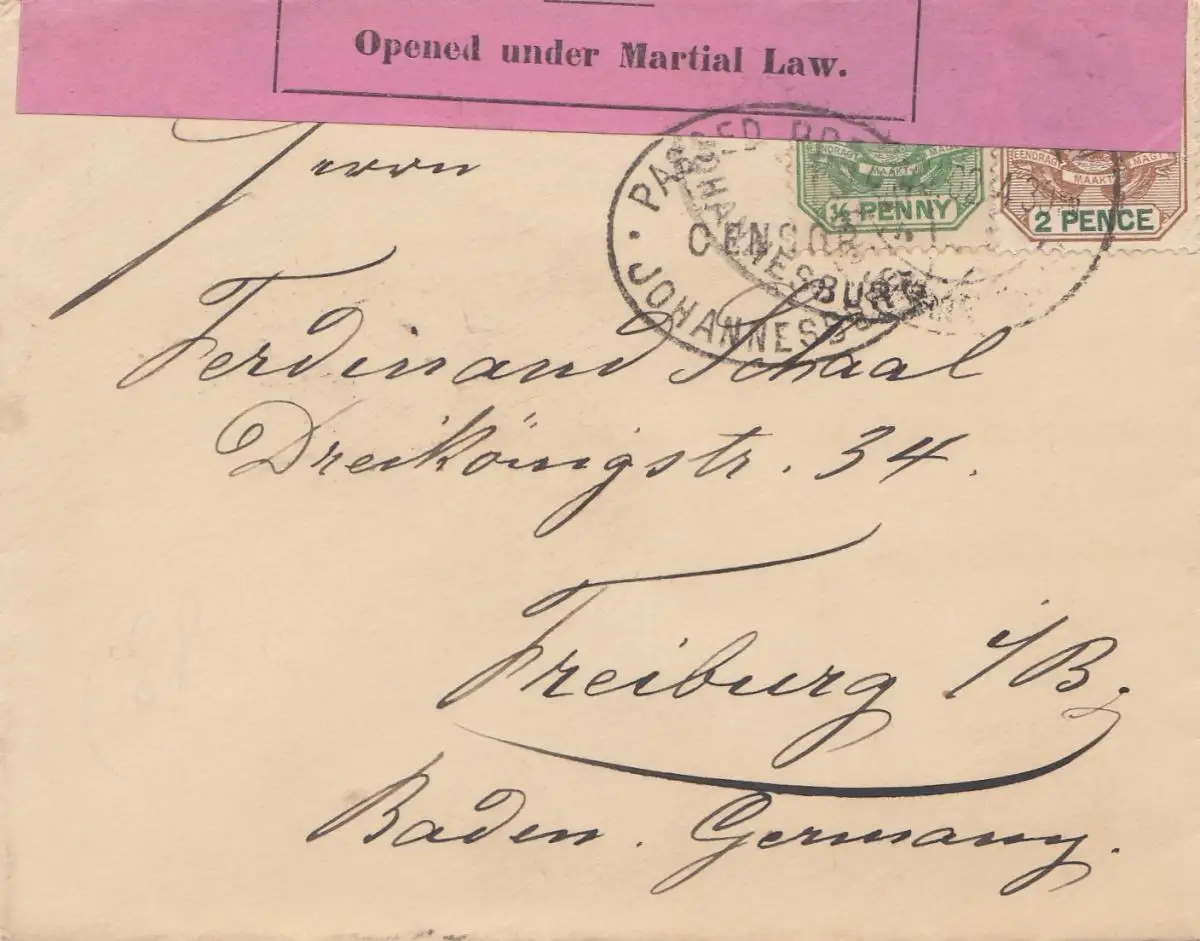 Opened under Martial Law.
PASSED PRESS
CENSOR
JOHANNESBURG
JOHANNESBURG
EENDRAGT MAAKT MAGT
½ PENNY
EENDRAGT MAAKT MAGT
2 PENCE
Herrn
Ferdinand Schaal
Dreikönigstr. 34.
Freiburg i/B.
Baden. Germany.